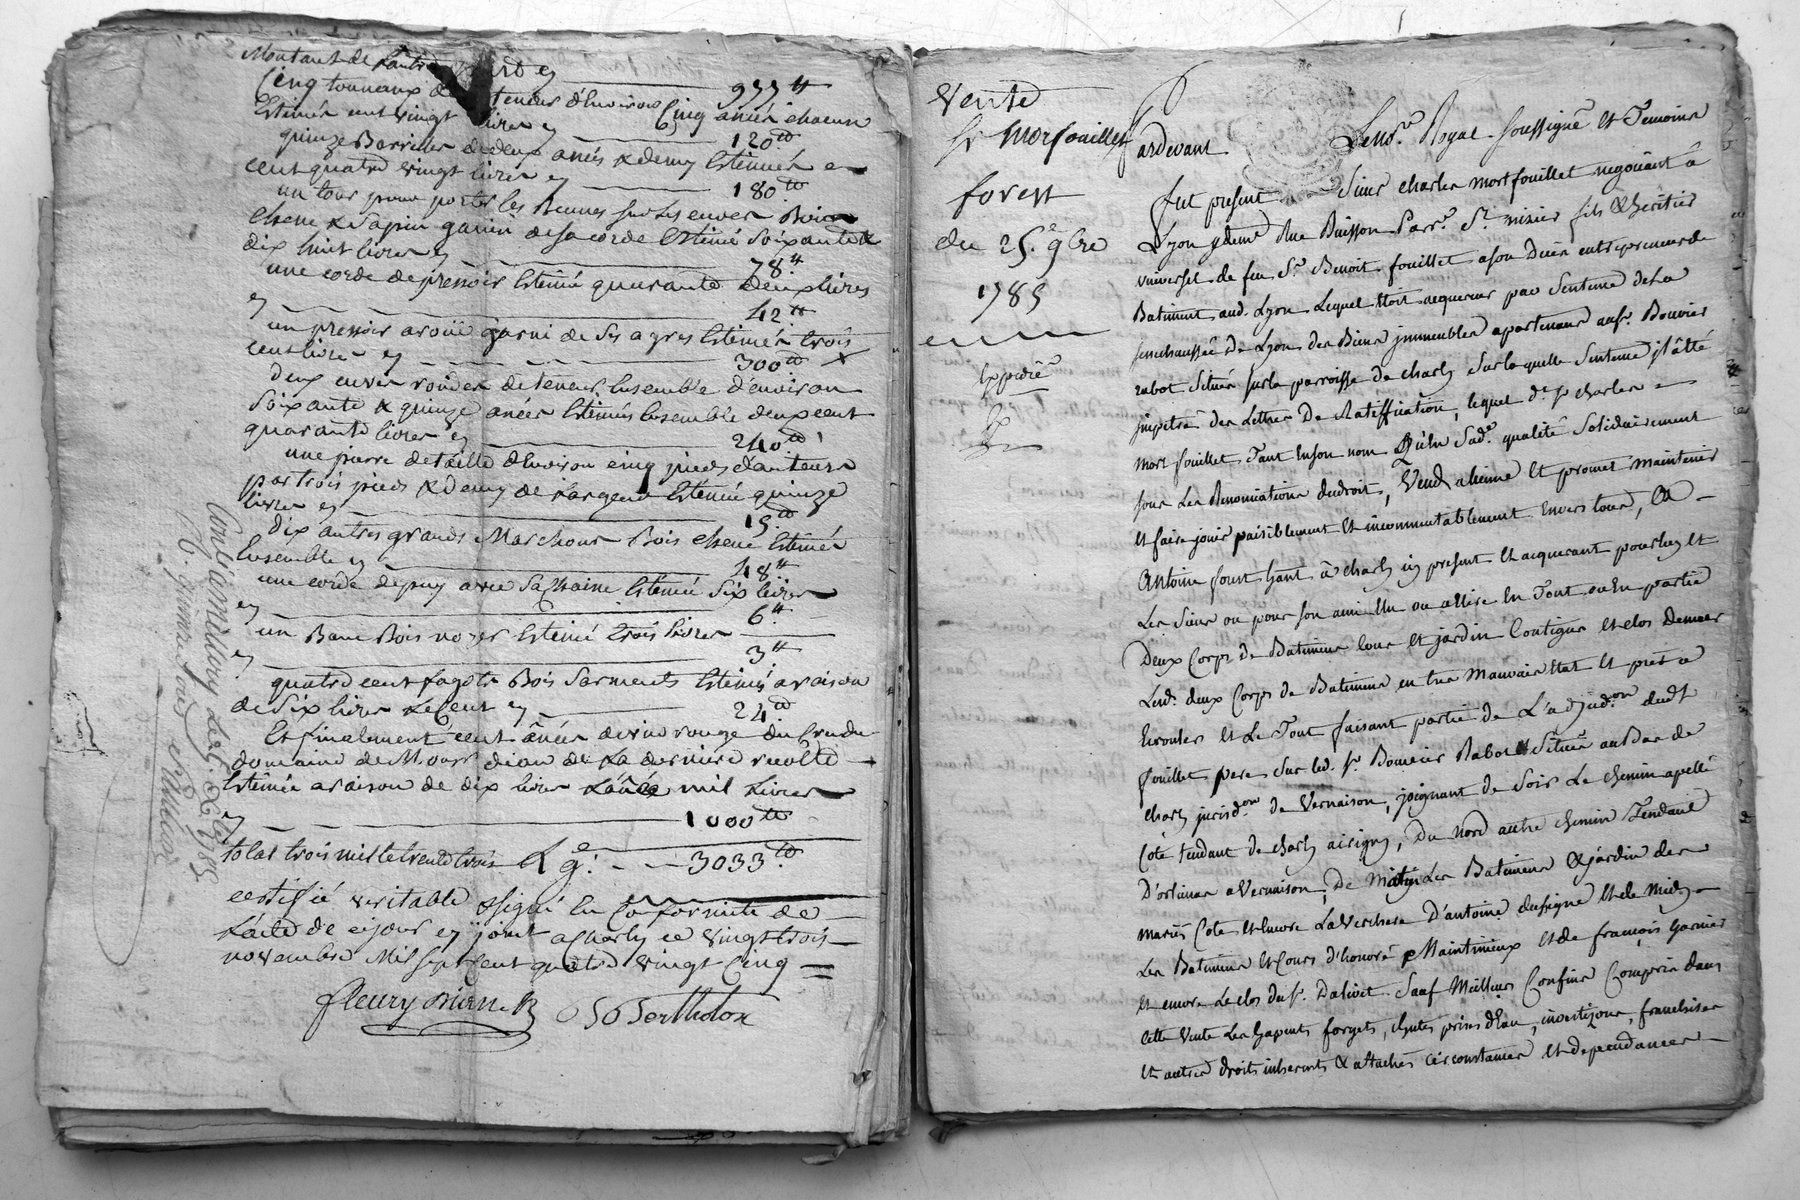 Montant de l'autre part cy 977 ₶
Cinq tonneaux de teneur d'environ Cinq anées chacun
Estimés cent vingt livres cy 120 ₶
quinze Barriques de deux anées & demy Estimées a
cent quatre vingt livres cy 180 ₶
un tour pour porter les Bennes sur les cuves Bois
chene & sapin garni de sa corde Estimé soixante &
dix huit livres cy 78 ₶
une corde de pressoir Estimée quarante deux livres
cy 42 ₶
un pressoir a roüe garni de ses agres Estimés trois
cent livres cy 300 ₶
deux cuves rondes de teneur Ensemble d'environ
soixante & quinze anées Estimées Ensemble deux cent
quarante livres cy 240 ₶
une pierre de taille d'Environ cinq pieds d'auteur
par trois pieds & demy de largeur Estimée quinze
livres cy 15 ₶
dix autres grands Marchoux Bois chene Estimés
Ensemble cy 48 ₶
une corde de puy avec sa Chaine Estimée Six livres
cy 6 ₶
un Banc Bois noyer Estimé trois livres
cy 3 ₶
quatre cent fagots Bois Sarments Estimés a raison
de Six livres Le Cent cy 24 ₶
Et finalement cent ânées de vin rouge du Cru du
domaine de Mour de la derniere recolte
Estimées a raison de dix livres L'ânée mil Livres
cy 1000 ₶
total trois mille trente trois 3033 ₶
certifié veritable & signé En Conformité de
L'acte de ce jour cy joint a Charly ce vingt trois
novembre Mil sept cent quatre vingt Cinq
fleury Bertholon
Vente
Sr Morfouillet
forest
du 25e 9bre
1785
Expedié
Pardevant Le no.re Royal soussigné Et Temoins
fut present Sieur charles mortfouillet negotiant â
Lyon y dem.t Rue Buisson Parr.e St nisier fils & heritier
universel de feu Sr Benoit fouillet a son Deces entrepreneur de
Batiment aud. Lyon Lequel Etoit acquereur par Sentence de La
senechaussée de Lyon des Biens immeubles apartenans au Sr Bouvier
rabot Situés sur la parroisse de charly sur laquelle Sentence il â eté
impetré des Lettres De Ratiffication, lequel d. Sr charles
Mort fouillet Tant En son nom Qu'En Sad.e qualité solidairement
sous Les Renonciations de droit, Vend aliene Et promet maintenir
Et faire jouir paisiblement Et incommutablement Envers tous, a
Antoine forest habitant â charly icy present Et acquerant pour luy Et
Les Siens ou pour son ami Elu ou a Elire En Tout ou En partie
Deux Corps de Batimens Cour Et jardin Contigus Et clos De murs
Lesd. deux Corps de Batimens en tres Mauvais Etat Et prets a
Ecrouler Et Le Tout faisant partie de L'adjud.on dud.t
fouillet pere Sur led. Sr Bouvier Rabot Situés au Bas de
charly jurisd.on de Vernaison, joignant de Soir Le Chemin apellé
Côte tendant de charly a irigny, Du Nord autre chemin Tendant
D'orlienas a Vernaison, De Matin Les Batimens & jardin des
mariés Cote Et Encore La Verchere D'antoine Et de Midy
Les Batimens Et Cours d'honoré Maintinieux Et de francois Garnier
Et encore Le clos du Sr Dalivet Sauf Meilleurs Confins Compris dans
Cette Vente Les forgets, chutes prises d'Eau, franchises
Et autres droits inherents & attachés circonstances Et dependances